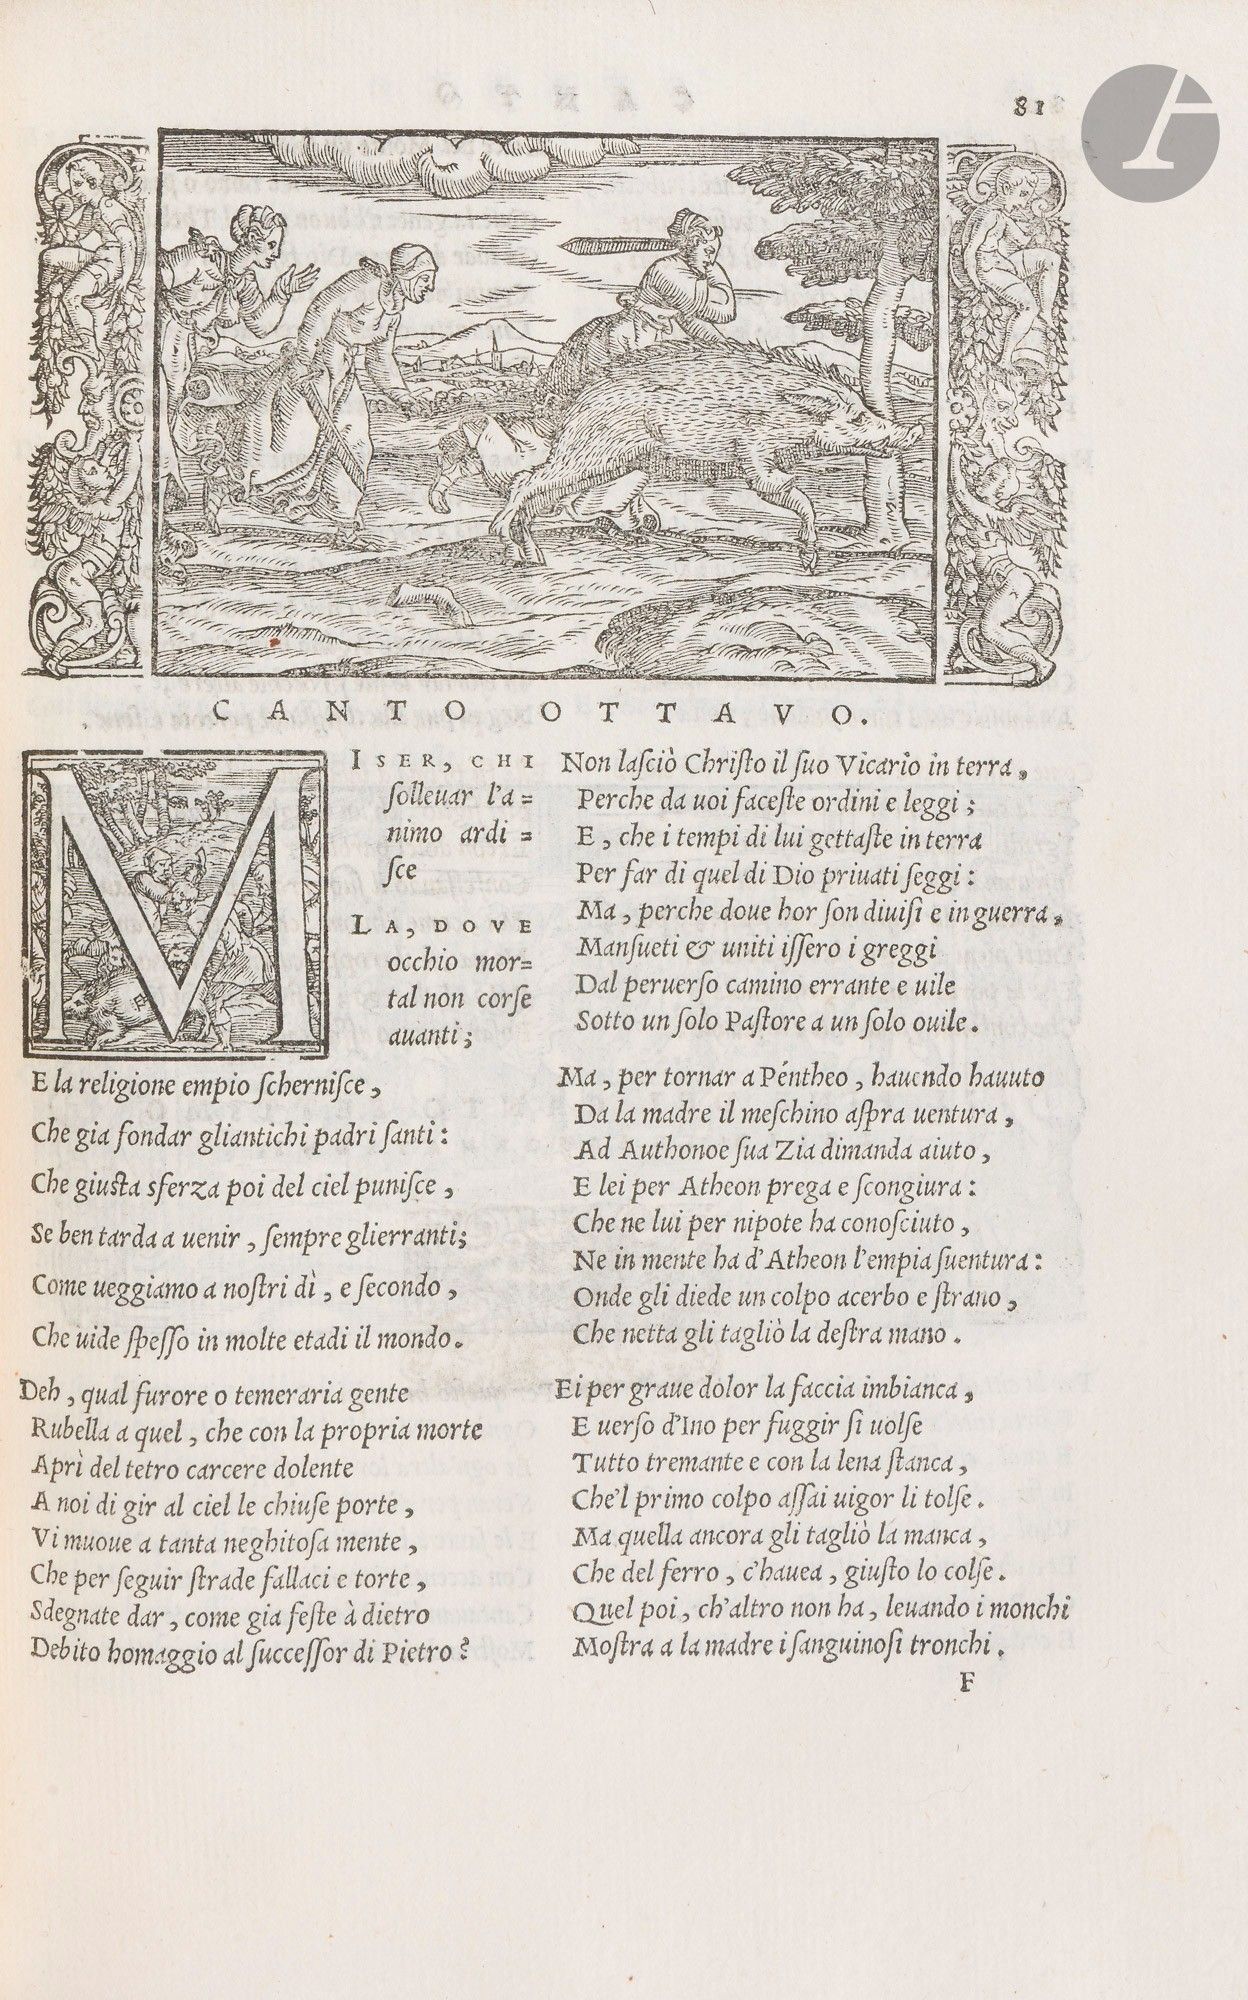 81
CANTO OTTAVO.
MISER, CHI
ſolleuar l'a=
nimo ardi=
ſce
LA, DOVE
occhio mor=
tal non corſe
auanti;
E la religione empio ſcherniſce,
Che gia fondar gliantichi padri ſanti:
Che giuſta sferza poi del ciel puniſce,
Se ben tarda a uenir, ſempre glierranti;
Come ueggiamo a noſtri dì, e ſecondo,
Che uide ſpeſſo in molte etadi il mondo.
Deh, qual furore o temeraria gente
Rubella a quel, che con la propria morte
Aprì del tetro carcere dolente
A noi di gir al ciel le chiuſe porte,
Vi muoue a tanta neghitoſa mente,
Che per ſeguir ſtrade fallaci e torte,
Sdegnate dar, come gia feſte à dietro
Debito homaggio al ſucceſſor di Pietro?
Non laſciò Chriſto il ſuo Vicario in terra,
Perche da uoi faceſte ordini e leggi;
E, che i tempi di lui gettaſte in terra
Per far di quel di Dio priuati ſeggi:
Ma, perche doue hor ſon diuiſi e in guerra,
Manſueti & uniti iſſero i greggi
Dal peruerſo camino errante e uile
Sotto un ſolo Paſtore a un ſolo ouile.
Ma, per tornar a Péntheo, hauendo hauuto
Da la madre il meſchino aſpra uentura,
Ad Authonoe ſua Zia dimanda aiuto,
E lei per Atheon prega e ſcongiura:
Che ne lui per nipote ha conoſciuto,
Ne in mente ha d'Atheon l'empia ſuentura:
Onde gli diede un colpo acerbo e ſtrano,
Che netta gli tagliò la deſtra mano.
Ei per graue dolor la faccia imbianca,
E uerſo d'Ino per fuggir ſi uolſe
Tutto tremante e con la lena ſtanca,
Che'l primo colpo aſſai uigor li tolſe.
Ma quella ancora gli tagliò la manca,
Che del ferro, c'hauea, giuſto lo colſe.
Quel poi, ch'altro non ha, leuando i monchi
Moſtra a la madre i ſanguinoſi tronchi.
F